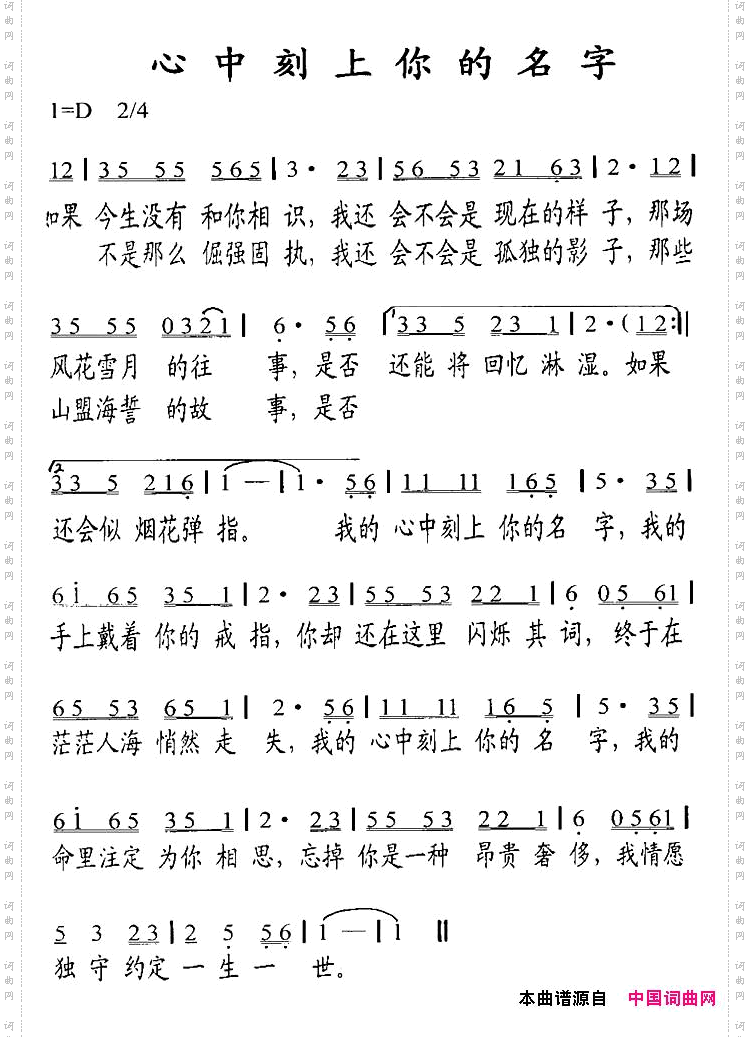 心中刻上你的名字
1=D 2/4
12 | 35 55 565 | 3· 23 | 56 53 21 63 | 2· 12 |
如果 今生没有 和你相 识，我还 会不会是 现在的样 子，那场
不是那么 倔强固 执，我还 会不会是 孤独的影 子，那些
35 55 0321 | 6· 56 33 5 23 1 | 2·( 12 :||
风花雪月 的往 事，是否 还能 将 回忆 淋 湿。如果
山盟海誓 的故 事，是否
2
33 5 216 | 1 — | 1· 56 | 11 11 165 | 5· 35 |
还会似 烟花弹 指。 我的 心中刻上 你的名 字，我的
6i 65 35 1 | 2· 23 | 55 53 22 1 | 6 05 61 |
手上戴着 你的 戒 指，你却 还在这里 闪烁 其 词， 终于在
65 53 65 1 | 2· 56 | 11 11 16 5 | 5· 35 |
茫茫人海 悄然 走 失，我的 心中刻上 你的 名 字，我的
6i 65 35 1 | 2· 23 | 55 53 22 1 | 6 0561 |
命里注定 为你 相 思，忘掉 你是一种 昂贵 奢 侈，我情愿
5 3 23 | 2 5 56 | 1 — | 1 ||
独 守 约定 一 生 一 世。
本曲谱源自 中国词曲网
词曲网